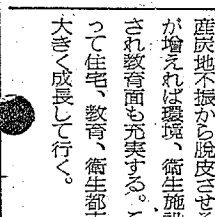 産炭地不振から脱皮させ
が増えれば環境、衛生施設
され教育面も充実する。
って住宅、教育、衛生都市
大きく成長して行く。